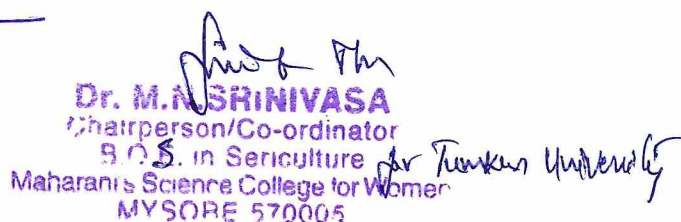 Dr. M.N.SRINIVASA
Chairperson/Co-ordinator
B.O.S. in Sericulture for Tumkur University
Maharani's Science College for Women
MYSORE 570005